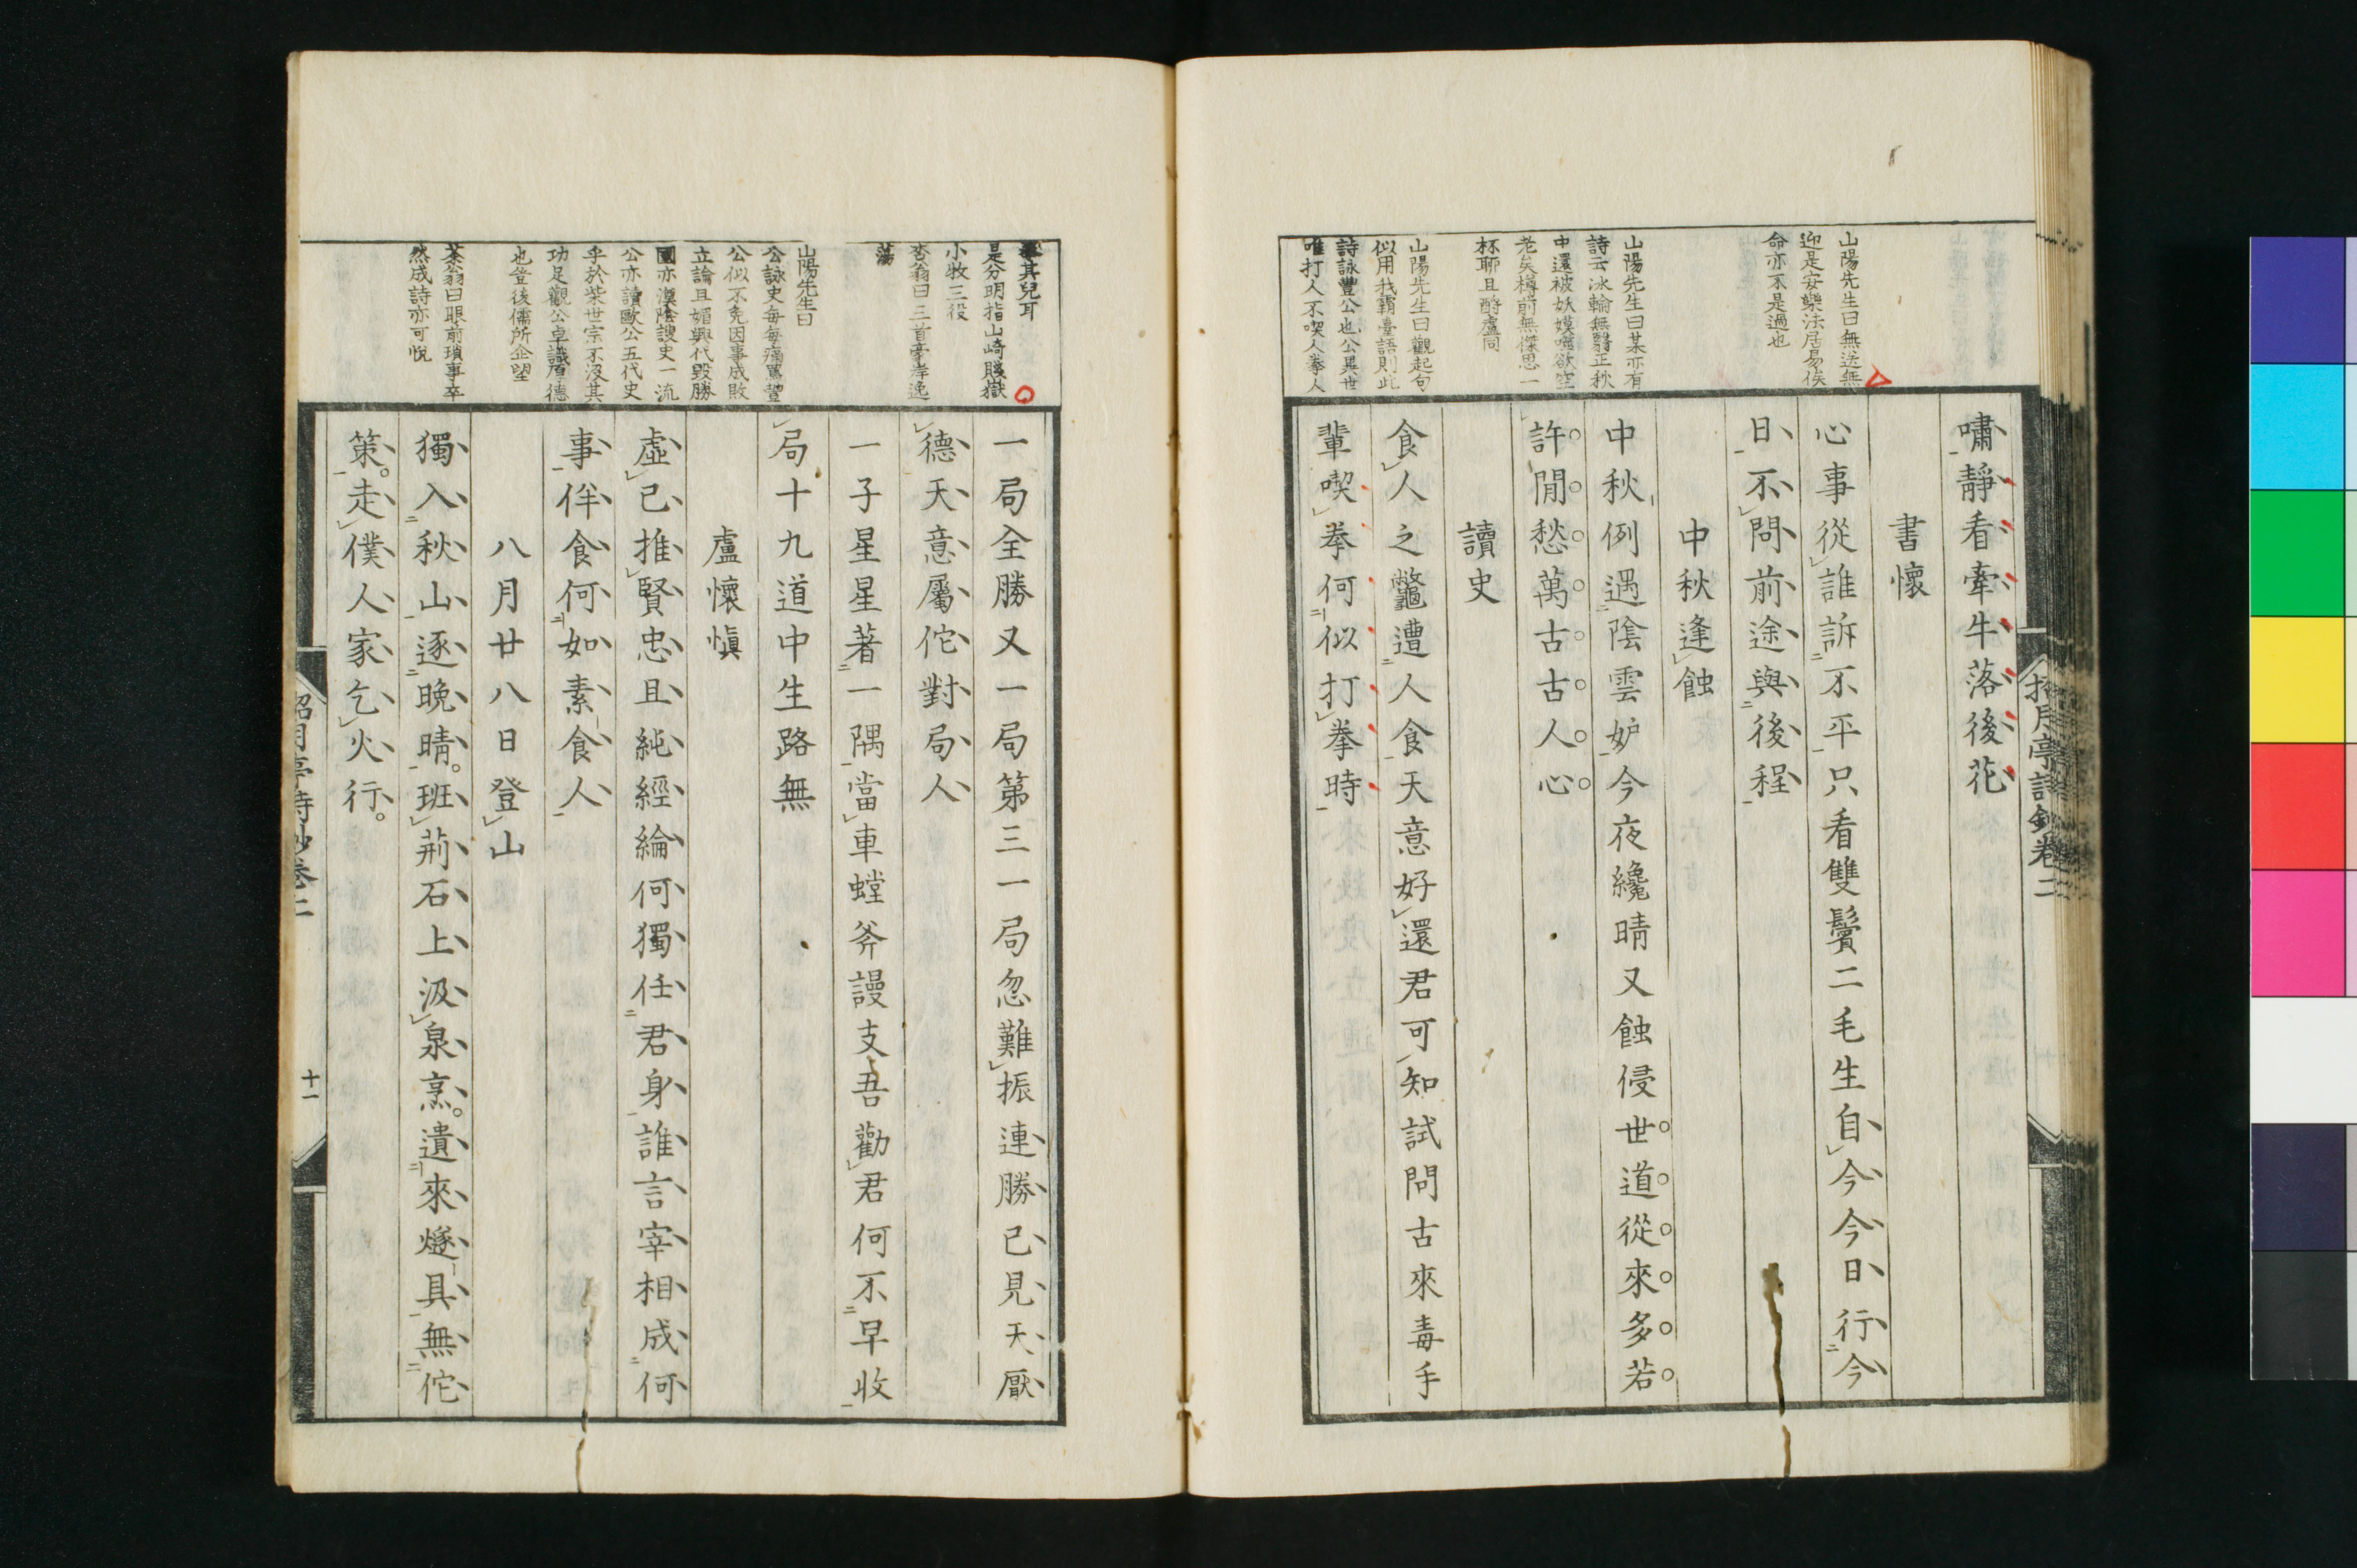 嘯靜看牽牛落後花
書懷
心事從誰訴不平只看雙鬢二毛生自今今日行今
日不問前途與後程
中秋逢蝕
中秋例遇陰雲妒今夜纔晴又蝕侵世道從來多若
許閒愁萬古古人心
讀史
食人之鼈遭人食天意好還君可知試問古來毒手
輩喫拳何似打拳時
山陽先生曰無送無
迎是安樂法居易俟
命亦不是過也
山陽先生曰某亦有
詩云冰輪無翳正秋
中還被妖蟆噬欲空
老矣樽前無傑思一
杯聊且酹盧同
山陽先生曰觀起句
似用我霸臺語則此
詩詠豐公也公異世
唯打人不喫人拳人
招月亭詩鈔卷二
一局全勝又一局第三一局忽難振連勝已見天厭
德天意屬佗對局人
一子星星著一隅當車螳斧謾支吾勸君何不早收
局十九道中生路無
盧懷愼
虛己推賢忠且純經綸何獨任君身誰言宰相成何
事伴食何如素食人
八月廿八日登山
獨入秋山逐晩晴班荊石上汲泉烹遺來燧具無佗
策走僕人家乞火行
其兒耳
是分明指山崎賤嶽
小牧三役
杏翁曰三首豪宕逸
蕩
山陽先生曰
公詠史每每痛罵豐
公似不免因事成敗
立論且媚興代毀勝
國亦漢陰謏史一流
公亦讀歐公五代史
乎於柴世宗不沒其
功足觀公卓識厚德
也豈後儒所企望
茶翁曰眼前瑣事卒
然成詩亦可悅
招月亭詩鈔卷二
十一